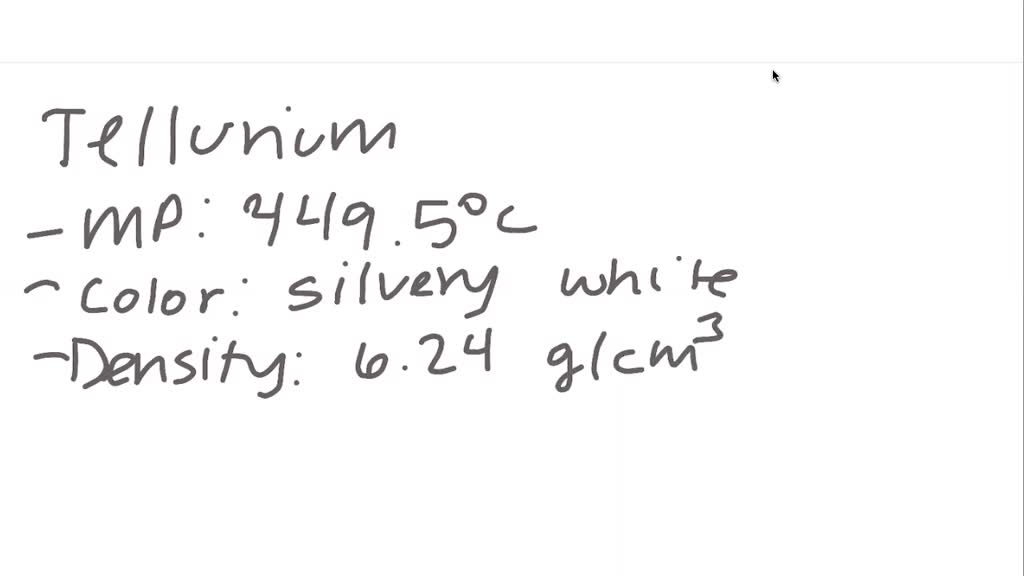 Tellurium
- MP: 449.5°C
- Color: silvery white
- Density: 6.24 g/cm³